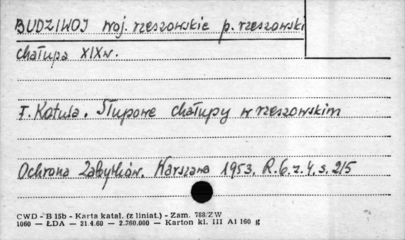 BUDZIWOJ woj. rzeszowskie p. rzeszowski
chałupa XIXw.
F. Kotula. Słupowe chałupy w rzeszowskim
Ochrona Zabytków. Warszawa 1953. R.6. z.4. s. 215
CWD - B 15b - Karta katal. (z liniat.) - Zam. 768/ZW
1060 — ŁDA — 21.4.60 — 2.760.000 — Karton kl. III A1 160 g